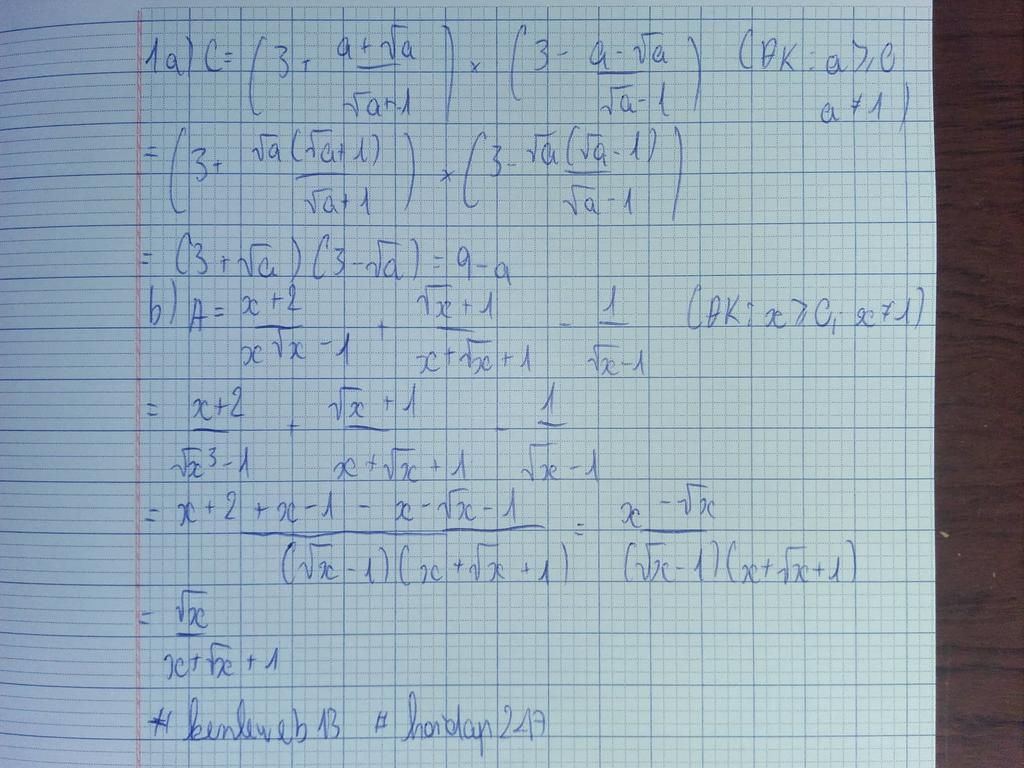 1a) C = (3 + (a + √a)/(√a + 1)) × (3 - (a - √a)/(√a - 1)) (ĐK: a ≥ 0
a ≠ 1)
= (3 + √a(√a + 1)/(√a + 1)) × (3 - √a(√a - 1)/(√a - 1))
= (3 + √a)(3 - √a) = 9 - a
b) A = (x + 2)/(x√x - 1) + (√x + 1)/(x + √x + 1) - 1/(√x - 1) (ĐK: x ≥ 0, x ≠ 1)
= (x + 2)/(√x³ - 1) + (√x + 1)/(x + √x + 1) - 1/(√x - 1)
= (x + 2 + x - 1 - x - √x - 1)/((√x - 1)(x + √x + 1)) = (x - √x)/((√x - 1)(x + √x + 1))
= √x/(x + √x + 1)
# kenleweb13 # hoidap247